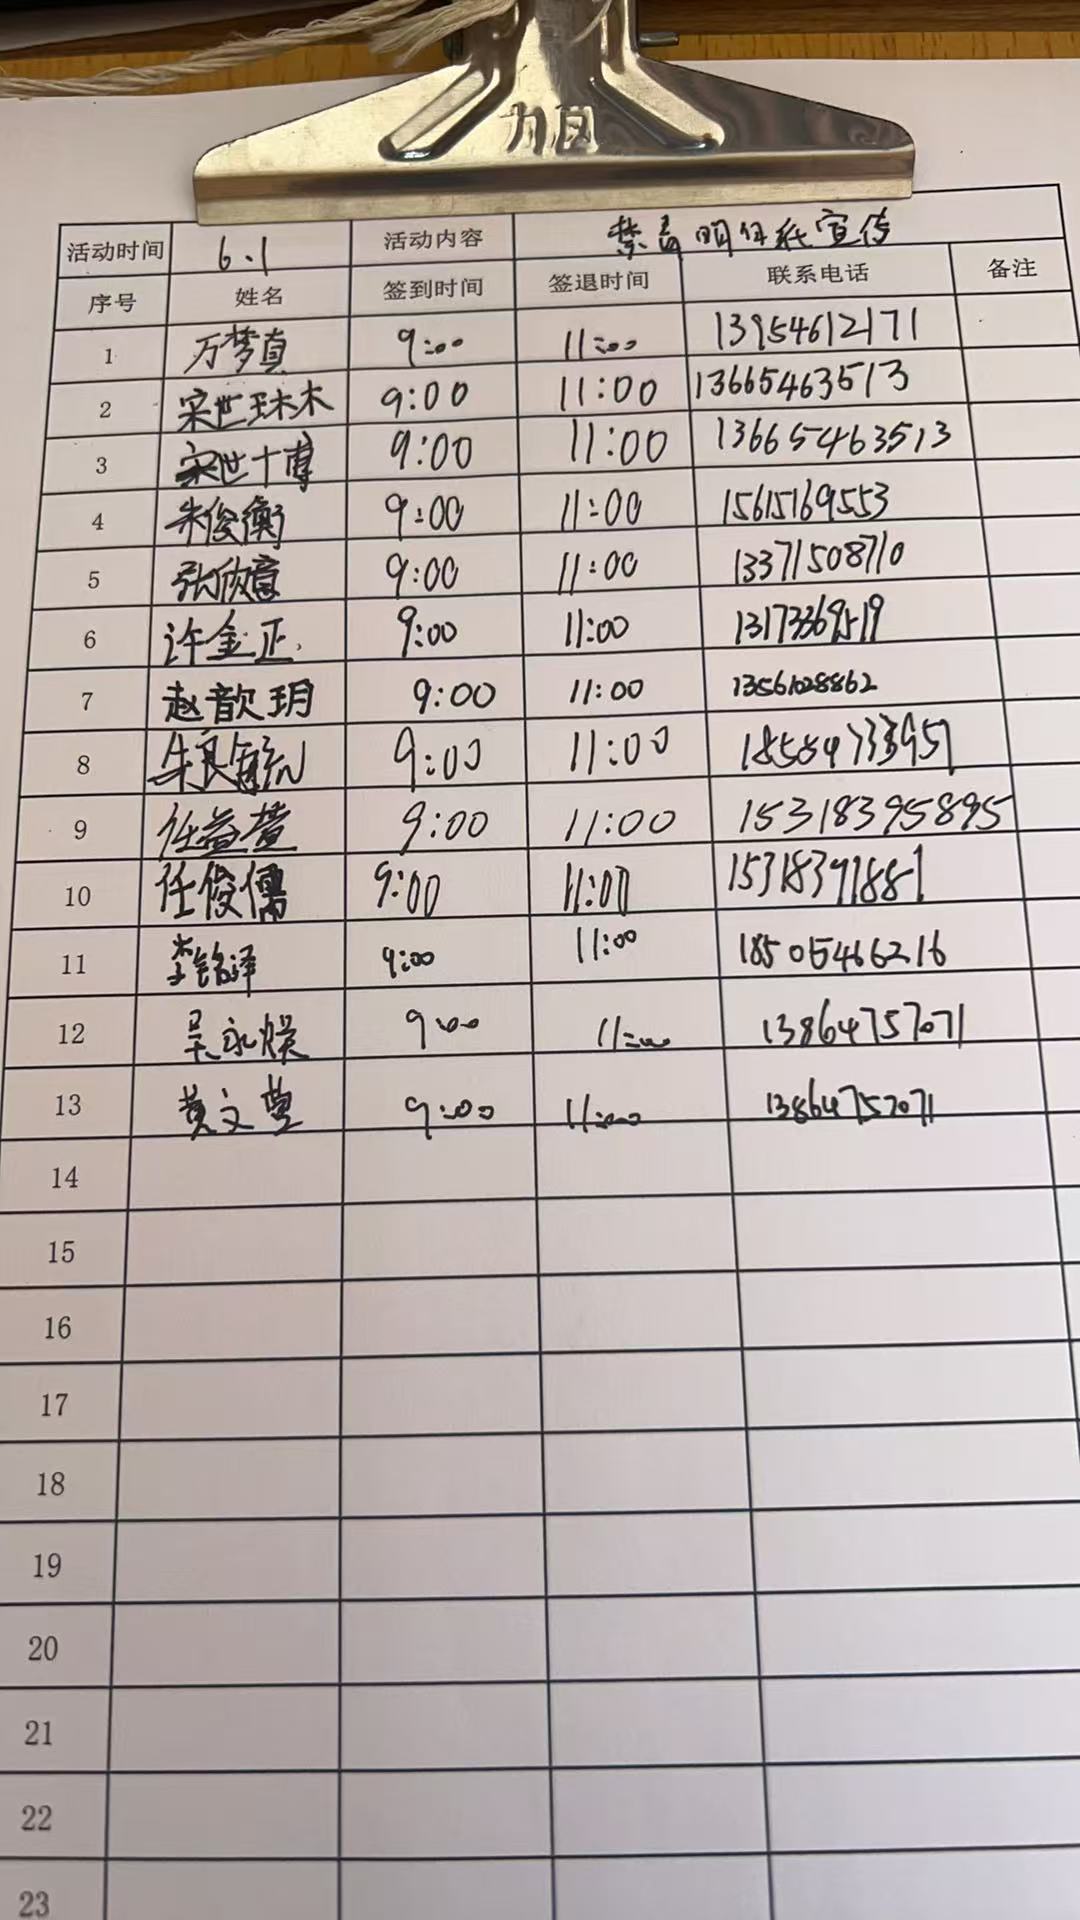 力因
活动时间 6.1 活动内容 禁毒明白纸宣传
序号 姓名 签到时间 签退时间 联系电话 备注
1 万梦真 9:00 11:00 13954612171
2 宋世琳木 9:00 11:00 13665463513
3 宋世博 9:00 11:00 13665463513
4 朱俊衡 9:00 11:00 15615169553
5 张欣意 9:00 11:00 13371508710
6 许金正 9:00 11:00 13173369519
7 赵歆玥 9:00 11:00 13561028862
8 朱良毓 9:00 11:00 18584733957
9 任益萱 9:00 11:00 15318395895
10 任俊儒 9:00 11:00 15318391881
11 李铭泽 9:00 11:00 18505466216
12 吴永燦 9:00 11:00 13864757071
13 黄文 9:00 11:00 13864757071
14
15
16
17
18
19
20
21
22
23